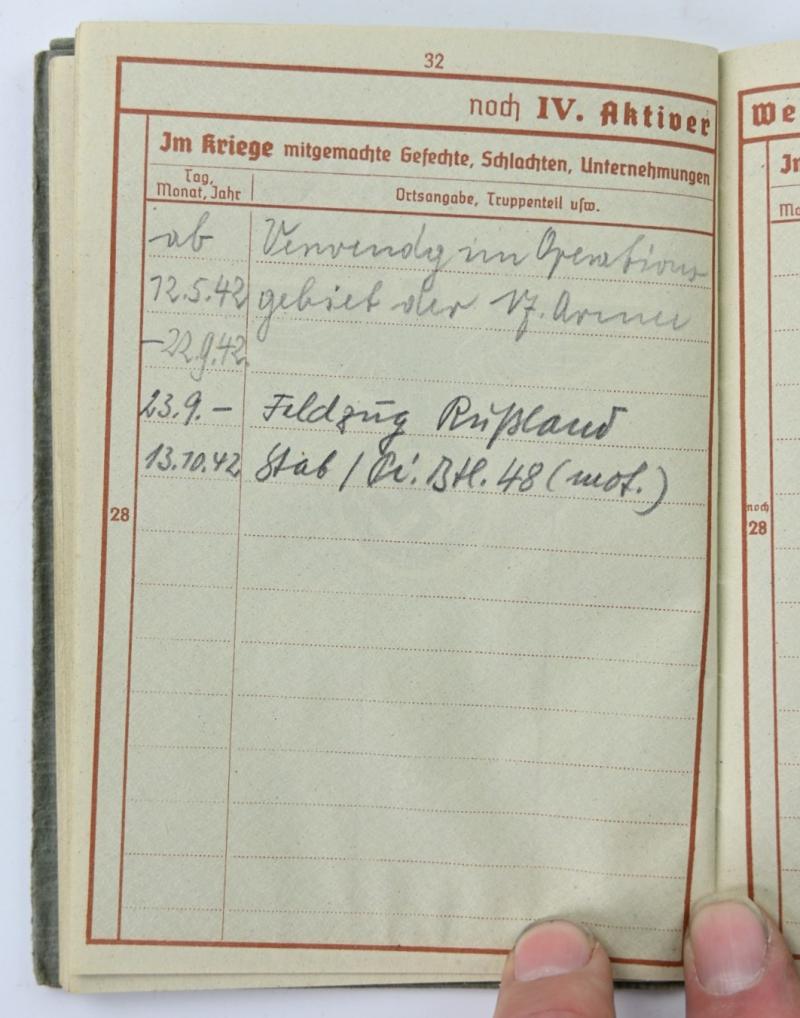 32
noch IV. Aktiver
Im Kriege mitgemachte Gefechte, Schlachten, Unternehmungen
Tag, Monat, Jahr
Ortsangabe, Truppenteil usw.
ab Verwendg im Operations
12.5.42 gebiet der 17. Armee
-22.9.42.
23.9.- Feldzug Rußland
13.10.42 Stab / Pi. Btl. 48 (mot.)
28
We
noch
28